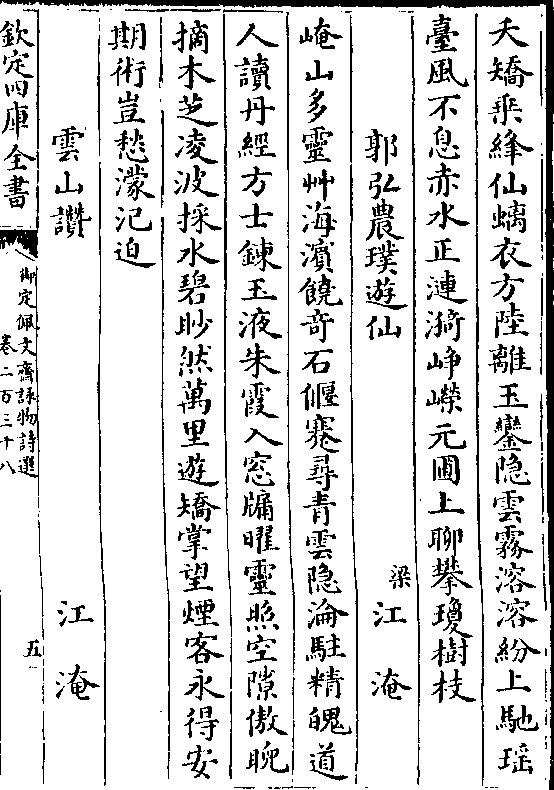 夭矯乘絳仙螭衣方陸離玉鑾隐雲霧溶溶紛上馳瑶
臺風不息赤水正漣漪崢嶸元圃上聊攀瓊樹枝
郭弘農璞遊仙 梁江淹
崦山多靈艸海濵饒竒石偃蹇尋青雲隐淪駐精魄道
人讀丹經方士鍊玉液朱霞入窓牖曜靈照空隙傲睨
摘木芝凌波採水碧眇然萬里遊矯掌望煙客永得安
期術豈愁濛汜迫
雲山讚 江淹
欽定四庫全書
御定佩文齋詠物詩選
卷二百三十八
五